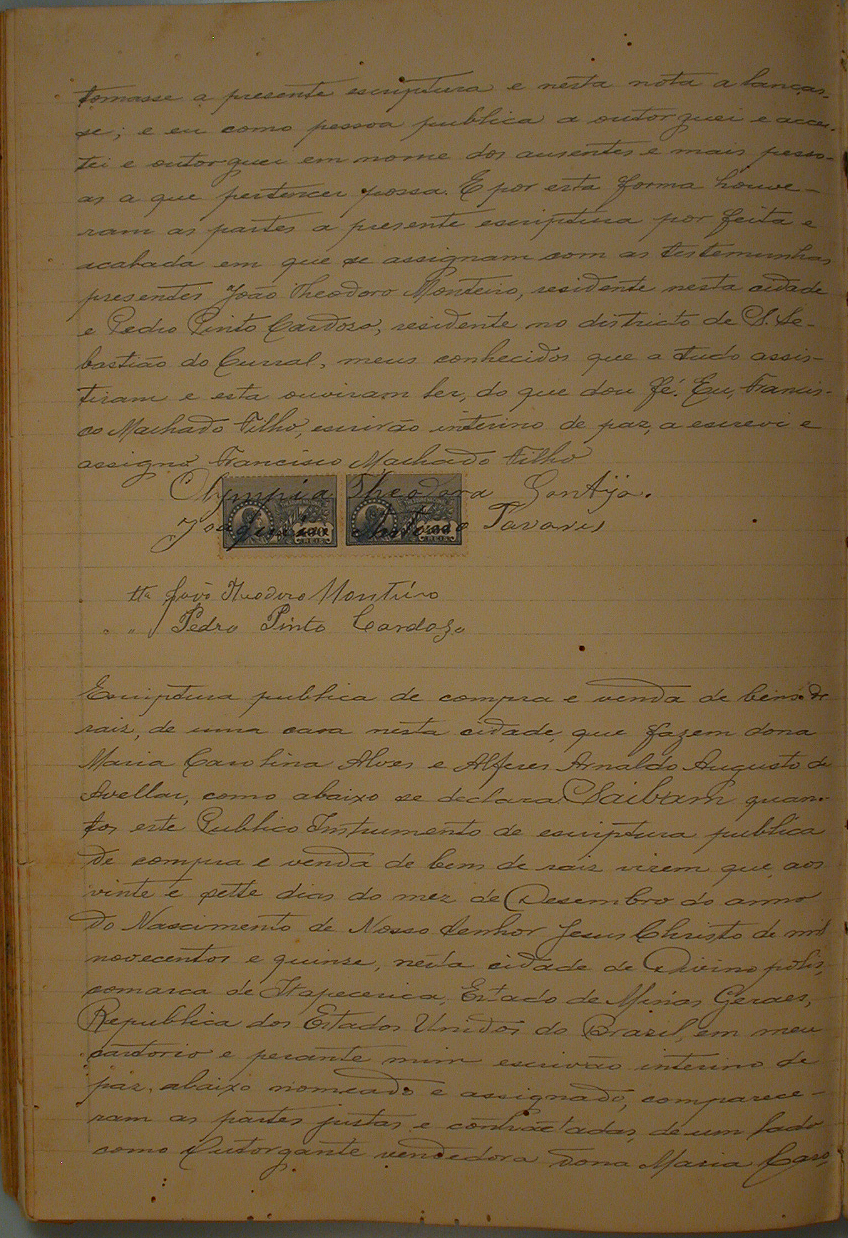 tomasse a presente escriptura e nesta nota a lanças-
se; e eu como pessoa publica a outorguei e accei-
tei e outorguei em nome dos ausentes e mais pesso-
as a que pertencer possa. E por esta forma houve-
ram as partes a presente escriptura por feita e
acabada em que se assignam com as testemunhas
presentes João Theodoro Monteiro, residente nesta cidade
e Pedro Pinto Cardoso, residente no districto de S. Se-
bastião do Curral, meus conhecidos que a tudo assis-
tiram e esta ouviram ler, do que dou fé. Eu, Francis-
co Machado Filho, escrivão interino de paz, a escrevi e
assigno Francisco Machado Filho
Olympia Theodora Gontijo.
Joaquim Antonio Tavares
REIS REIS
ttª João Theodoro Monteiro
" " Pedro Pinto Cardozo
Escriptura publica de compra e venda de bens de
raiz, de uma casa nesta cidade, que fazem dona
Maria Carolina Alves e Alferes Arnaldo Augusto de
Avellar, como abaixo se declara. Saibam quan-
tos este Publico Instrumento de escriptura publica
de compra e venda de bem de raiz virem que, aos
vinte e sette dias do mez de Desembro do anno
do Nascimento de Nosso Senhor Jesus Christo de mil
novecentos e quinse, nesta cidade de Divinopolis,
comarca de Itapecerica, Estado de Minas Geraes,
Republica dos Estados Unidos do Brazil, em meu
cartorio e perante mim escrivão interino de
paz, abaixo nomeado e assignado, comparece-
ram as partes justas e contractadas, de um lado
como Outorgante vendedora dona Maria Caro,